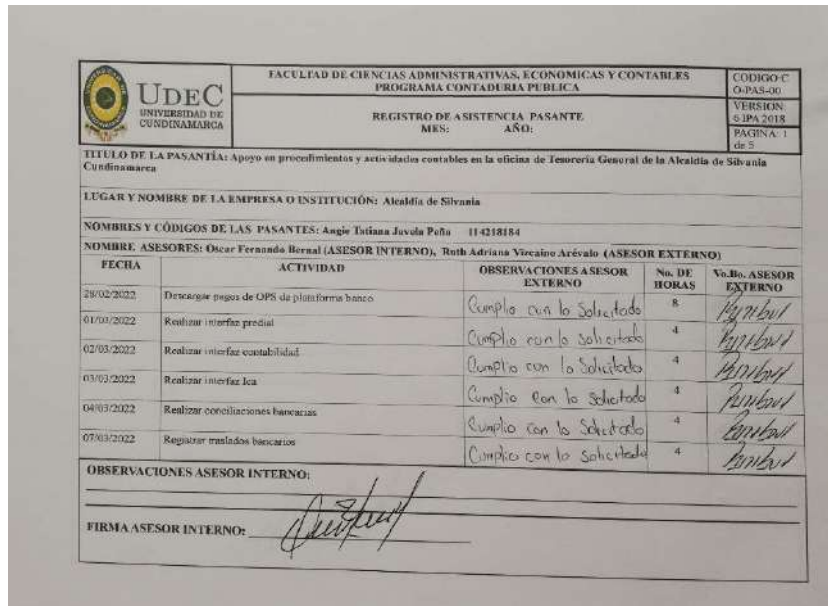 UDEC
UNIVERSIDAD DE
CUNDINAMARCA
FACULTAD DE CIENCIAS ADMINISTRATIVAS, ECONOMICAS Y CONTABLES
PROGRAMA CONTADURIA PUBLICA
REGISTRO DE ASISTENCIA PASANTE
MES: AÑO:
CODIGO:C
O-PAS-00
VERSION:
6 IPA 2018
PAGINA: 1
de 5
TITULO DE LA PASANTÍA: Apoyo en procedimientos y actividades contables en la oficina de Tesorería General de la Alcaldía de Silvania
Cundinamarca
LUGAR Y NOMBRE DE LA EMPRESA O INSTITUCIÓN: Alcaldía de Silvania
NOMBRES Y CÓDIGOS DE LAS PASANTES: Angie Tatiana Peña 114218184
NOMBRE ASESORES: Oscar Fernando Bernal (ASESOR INTERNO), Ruth Adriana Arévalo (ASESOR EXTERNO)
FECHA ACTIVIDAD OBSERVACIONES ASESOR EXTERNO No. DE HORAS Vo.Bo. ASESOR EXTERNO
28/02/2022 Descargar pagos de OPS de plataforma banco Cumplio con lo Solicitado 8
01/03/2022 Realizar interfaz predial Cumplio con lo Solicitado 4
02/03/2022 Realizar interfaz contabilidad Cumplio con lo Solicitado 4
03/03/2022 Realizar interfaz Ica Cumplio con lo Solicitado 4
04/03/2022 Realizar conciliaciones bancarias Cumplio con lo Solicitado 4
07/03/2022 Registrar traslados bancarios Cumplio con lo Solicitado 4
OBSERVACIONES ASESOR INTERNO:
FIRMA ASESOR INTERNO: